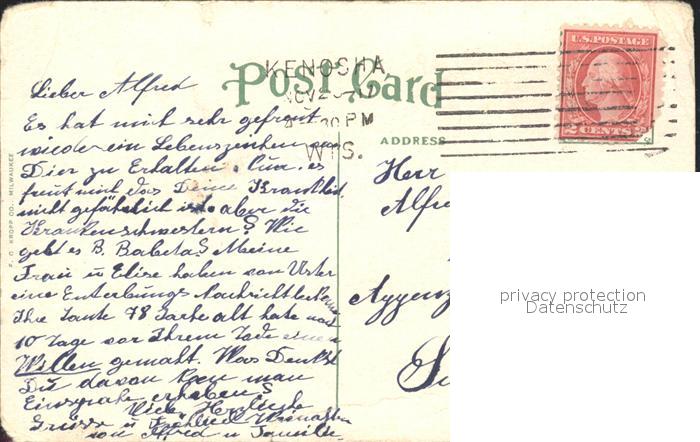 Post Card
KENOSHA
NOV 2
30 PM
WIS.
U.S. POSTAGE
2 CENTS 2
ADDRESS
Lieber Alfred
Es hat mich sehr gefreut
wieder ein Lebenszeichen von
Dier zu Erhalten. Nur es
freut mich das Deine Krankheit
nicht gefährlich ist aber die
Krankenschwestern? Wie
geht es B. Babeta? Meine
Frau u Elise haben von Uster
eine Enterbungs Nachricht bekom
Ihre Tante 78 Jarhe alt hate nach
10 Tage vor Ihrem Tode einen
Willen gemaht. Was Denkst
Du davon kan man
Einsprahe erheben?
Viele Herzliche
Grüsse u Fröhliche Weinachten
von Alfred u Familie.
Herr
Alfre
Appenz
E. C. KROPP CO., MILWAUKEE
privacy protection
Datenschutz